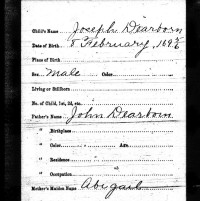 Child's Name Joseph Dearborn
Date of Birth 8 February, 169 5/6
Place of Birth
Sex Male Color
Living or Stillborn
No. of Child, 1st, 2d, etc.
Father's Name John Dearborn
" Birthplace
" Color Age
" Residence
" Occupation
Mother's Maiden Name Abigail